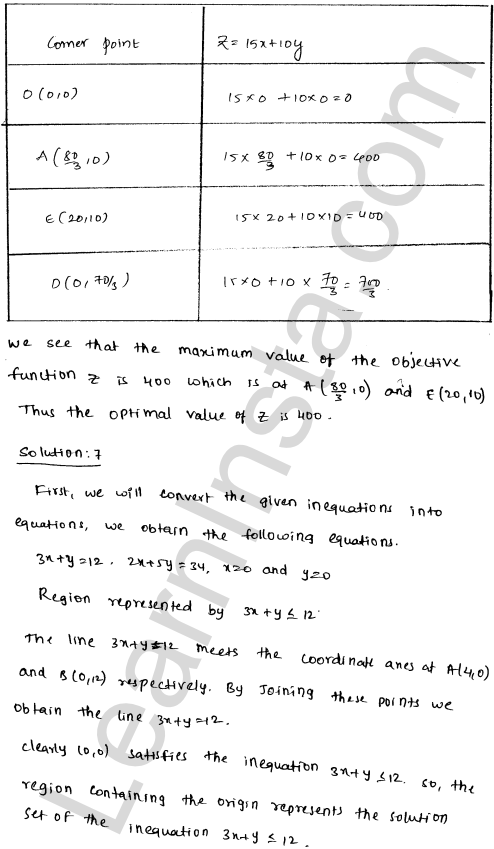 Corner point Z = 15x+10y
O (0,0) 15×0 +10×0=0
A (80/3 ,0) 15× 80/3 +10×0=400
E (20,10) 15×20+10×10=400
D (0, 70/3) 15×0+10 × 70/3 = 700/3 .
we see that the maximum value of the objective
function z is 400 which is at A (80/3 ,0) and E (20,10)
Thus the optimal value of z is 400.
Solution:7
First, we will convert the given inequations into
equations, we obtain the following equations.
3x+y=12 , 2x+5y=34, x=0 and y=0
Region represented by 3x+y ≤ 12
The line 3x+y≤12 meets the coordinate axes at A(4,0)
and B(0,12) respectively. By Joining these points we
obtain the line 3x+y=12.
clearly (0,0) satisfies the inequation 3x+y ≤12. so, the
region containing the origin represents the solution
set of the inequation 3x+y ≤ 12.
LearnInsta.com